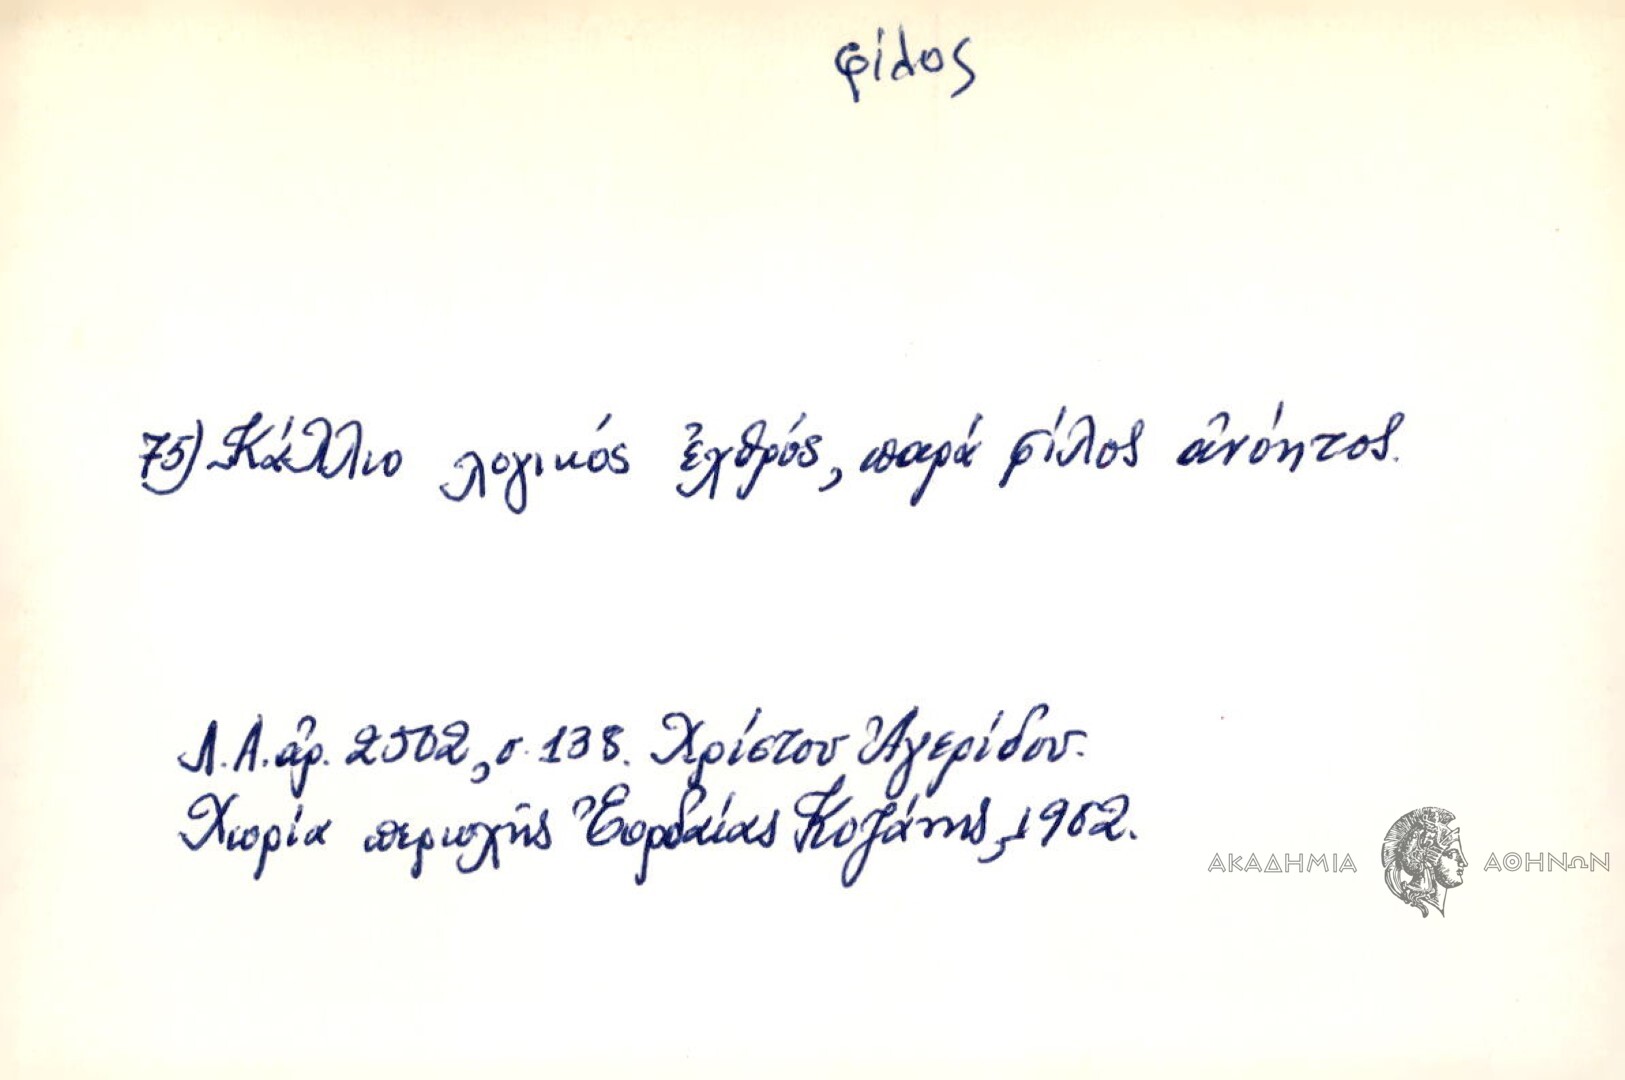 φίλος
75) Κάλλιο λογικός ἐχθρός, παρά φίλος ἀνόητος.
Λ.Α. ἀρ. 2502, σ. 138. Χρίστου Ἀγερίδου.
Χωρία περιοχῆς Ἐορδαίας Κοζάνης, 1962.
ΑΚΑΔΗΜΙΑ ΑΘΗΝΩΝ